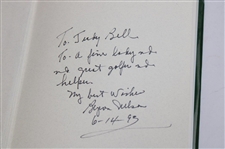 To Judy Bell
To a fine lady and
a great golfer and
helper
My best Wishes
Byron Nelson
6-14-93